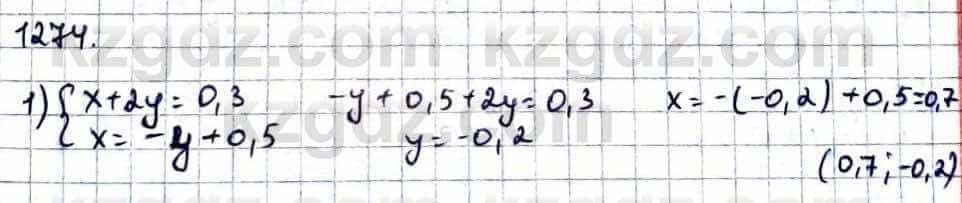 kzgdz.com kzgdz.com
1274.
1) { x+2y=0,3 -y+0,5+2y=0,3 x=-(-0,2)+0,5=0,7
x=-y+0,5 y=-0,2
(0,7;-0,2)